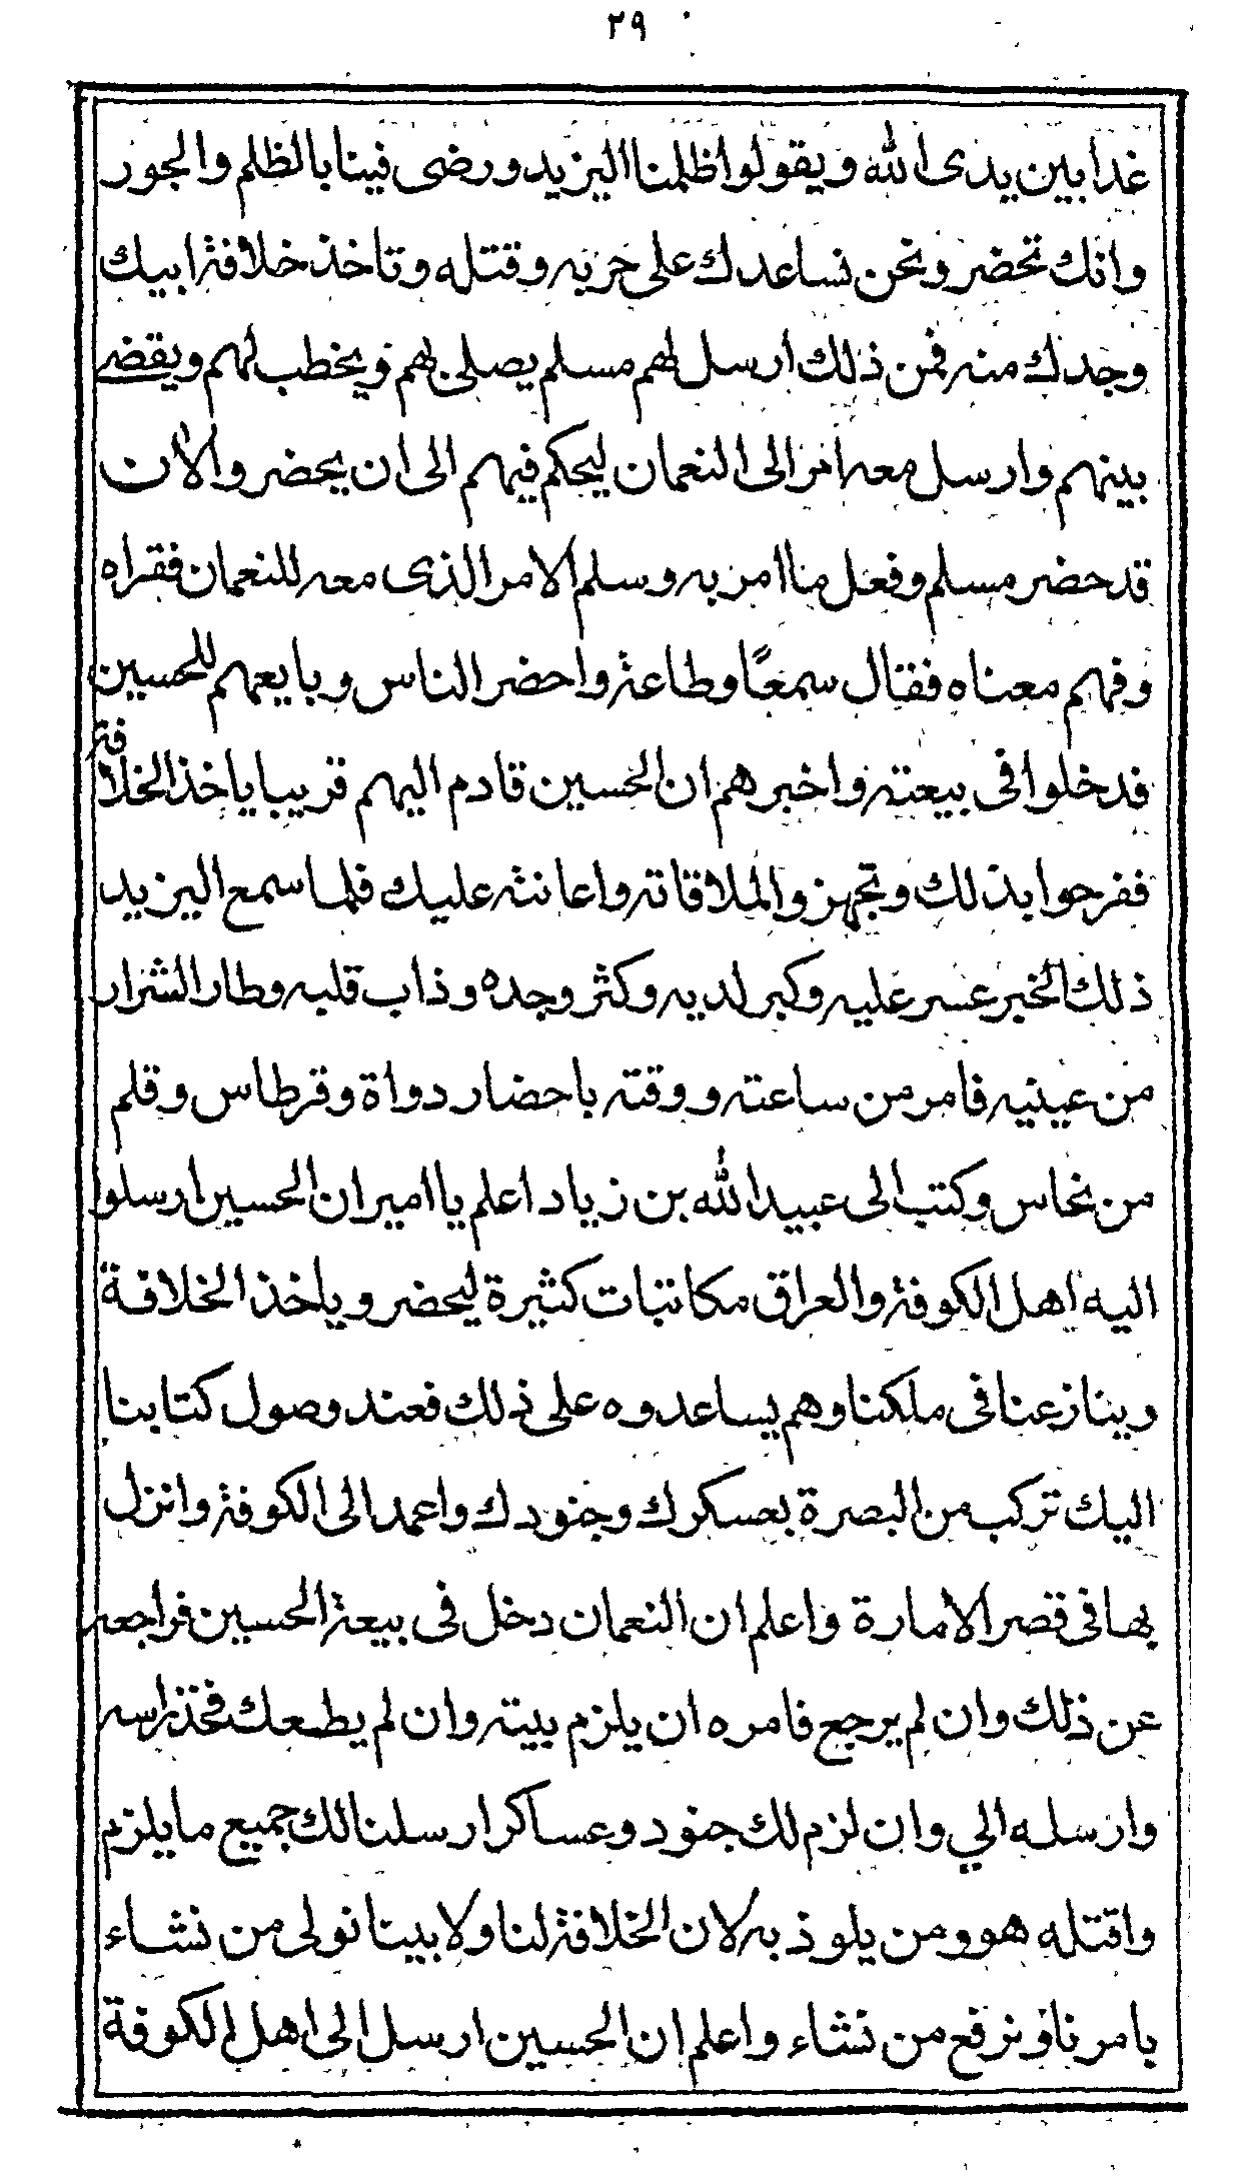 ٢٩
غدا بين يدى الله ويقولوا ظلمنا اليزيد ورضى فينا بالظلم والجور
وانك تحضر ونحن نساعدك على حربه وقتله وتاخذ خلافة ابيك
وجدك منه فمن ذلك ارسل لهم مسلم يصلى بهم ويخطب لهم ويقضى
بينهم وارسل معه امر الى النعمان ليحكم فيهم الى ان يحضر والآن
قد حضر مسلم وفعل ما امر به وسلم الامر الذى معه للنعمان فقراه
وفهم معناه فقال سمعًا وطاعة واحضر الناس وبايعهم للحسين
فدخلوا فى بيعته واخبرهم ان الحسين قادم اليهم قريبا ياخذ الخلافة
ففرحوا بذلك وتجهزوا لملاقاته واعانته عليك فلما سمع اليزيد
ذلك الخبر عسر عليه وكبر لديه وكثر وجده وذاب قلبه وطار الشرار
من عينيه فامر من ساعته ووقته باحضار دواة وقرطاس وقلم
من نحاس وكتب الى عبيد الله بن زياد اعلم يا امير ان الحسين ارسلوا
اليه اهل الكوفة والعراق مكاتبات كثيرة ليحضر وياخذ الخلافة
وينازعنا فى ملكنا وهم يساعدوه على ذلك فعند وصول كتابنا
اليك تركب من البصرة بعسكرك وجنودك واعمد الى الكوفة وانزل
بها فى قصر الامارة واعلم ان النعمان دخل فى بيعة الحسين فراجعه
عن ذلك وان لم يرجع فامره ان يلزم بيته وان لم يطعك فخذ راسه
وارسله الي وان لزم لك جنود وعساكر ارسلنا لك جميع ما يلزم
واقتله هو ومن يلوذ به لان الخلافة لنا ولابينا نولى من نشاء
بامرنا ونرفع من نشاء واعلم ان الحسين ارسل الى اهل الكوفة